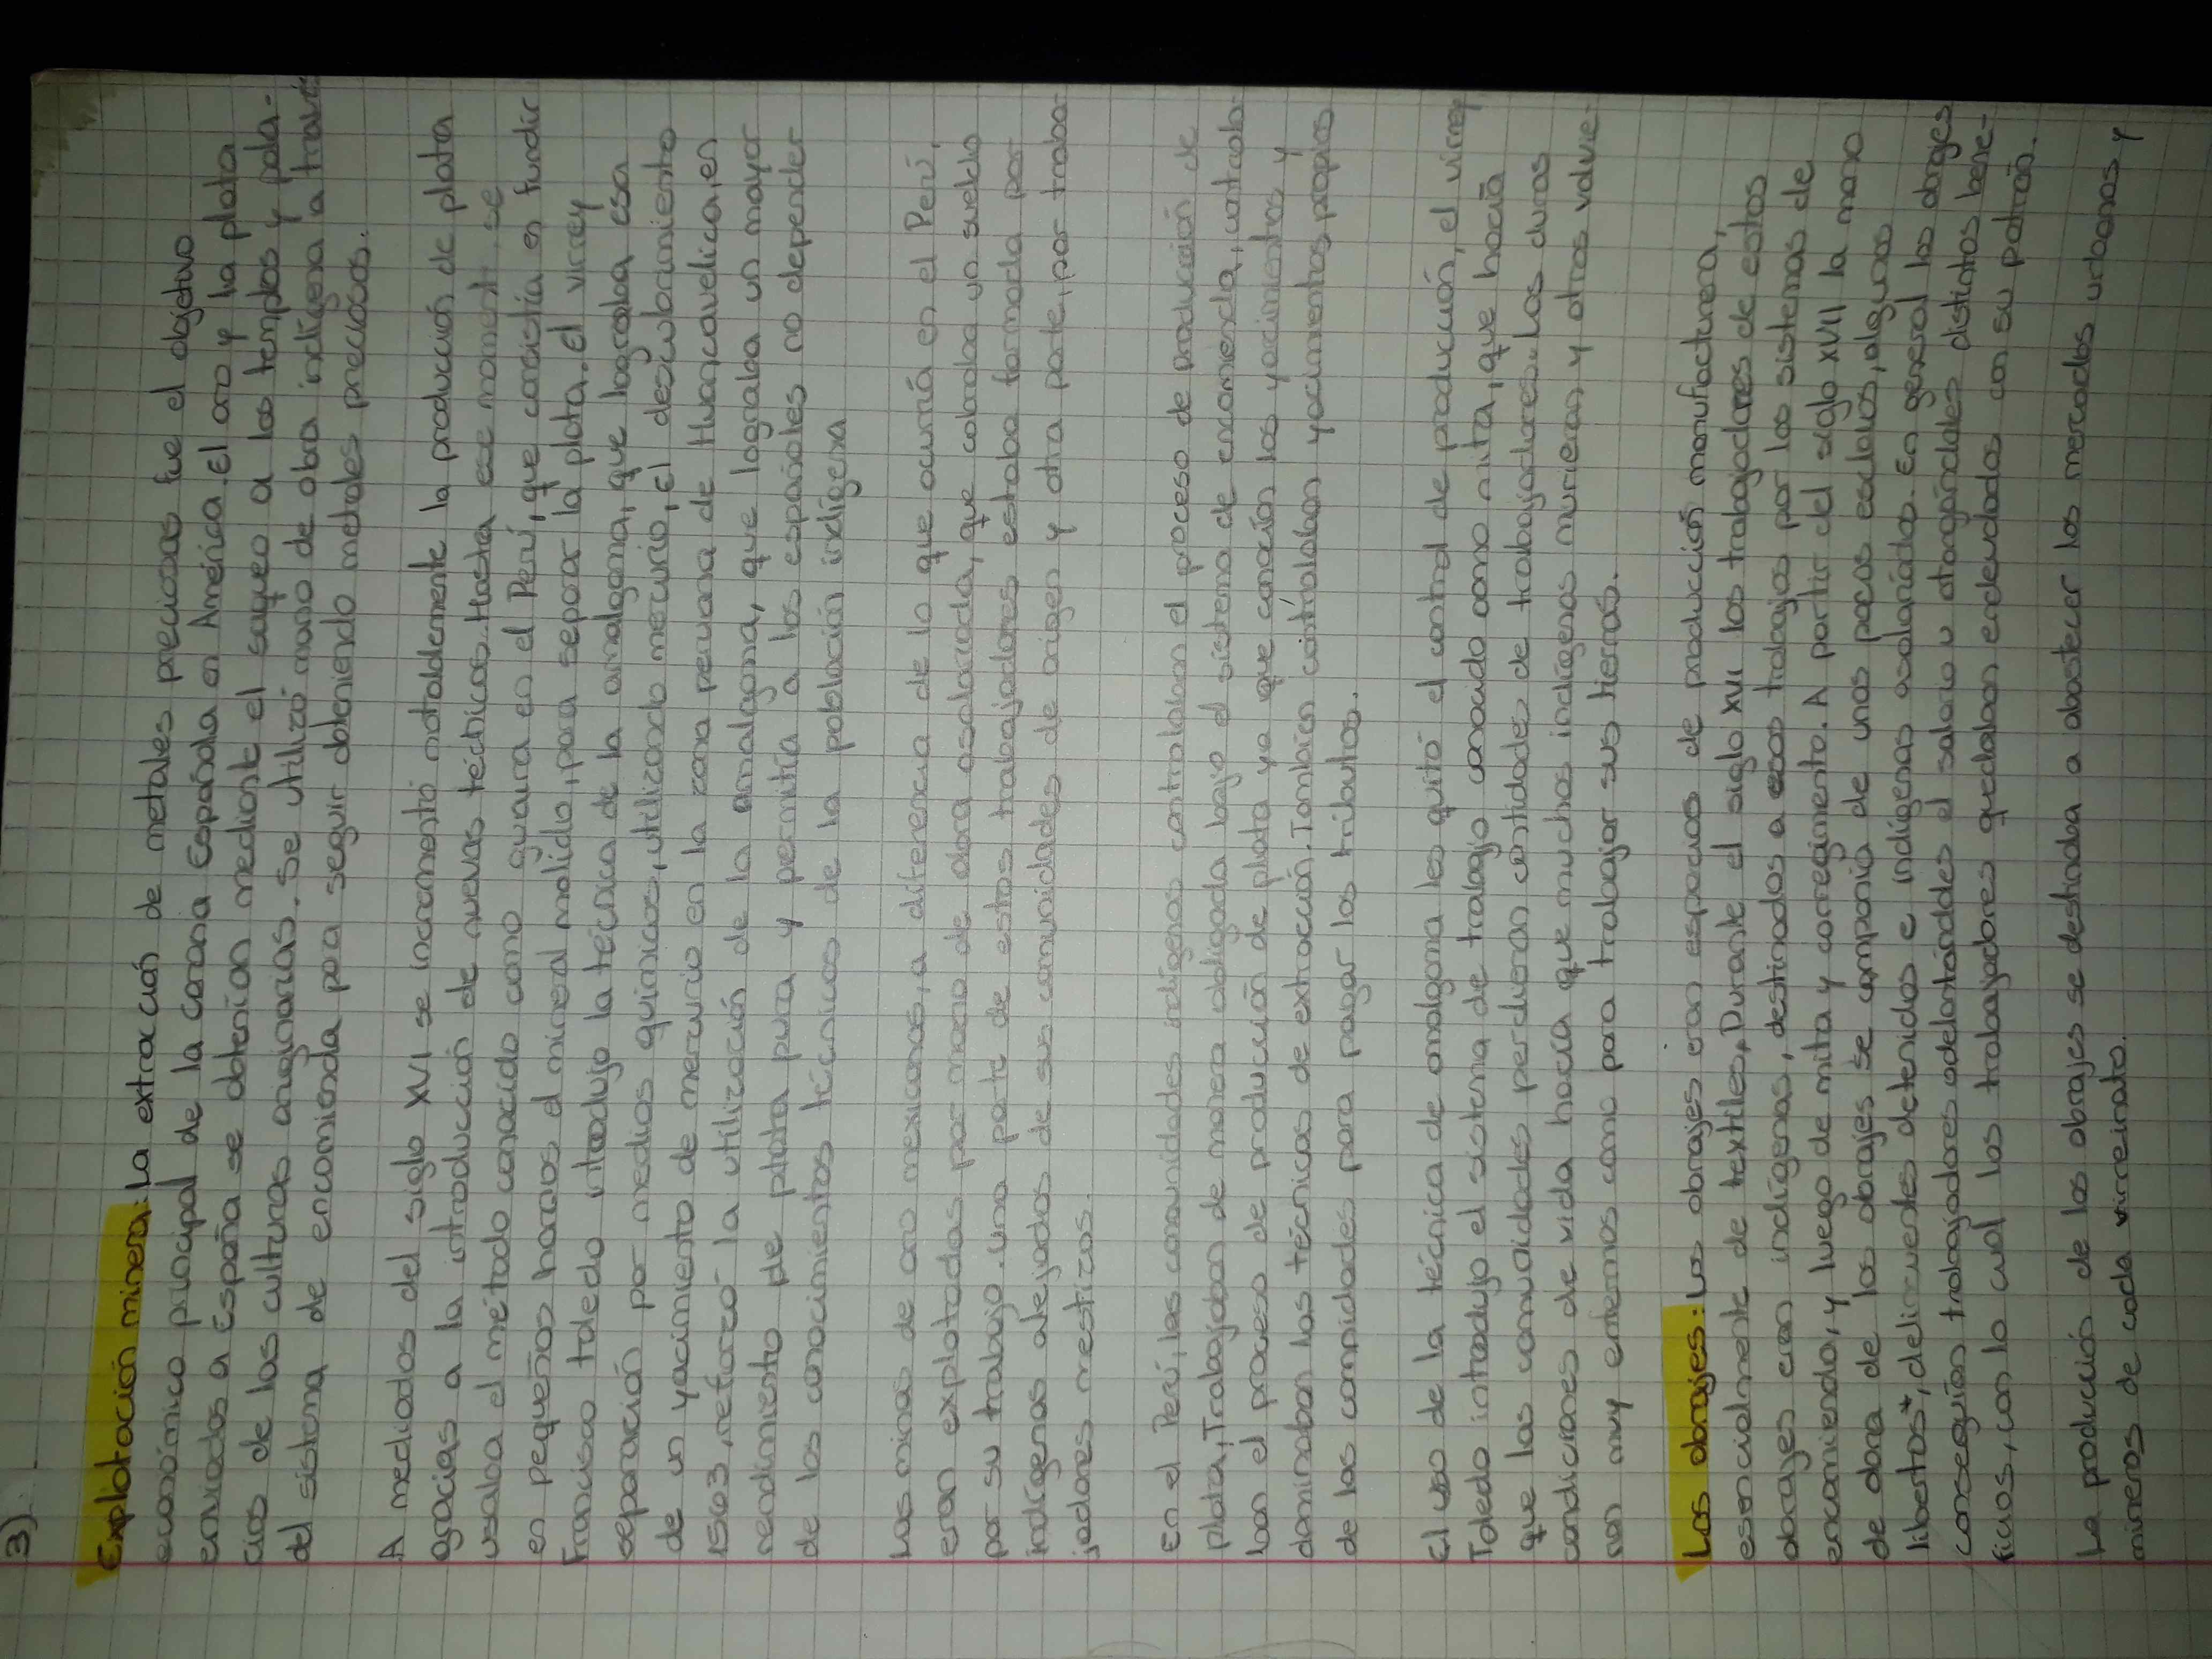 3)
Explotación minera: La extracción de metales preciosos fue el objetivo
económico principal de la corona Española en América. El oro y la plata
enviados a España se obtenían mediante el saqueo a los templos y pala-
cios de las culturas originarias. Se utilizó mano de obra indígena a través
del sistema de encomienda para seguir obteniendo metales preciosos.
A mediados del siglo XVI se incrementó notablemente la producción de plata
gracias a la introducción de nuevas técnicas. Hasta ese momento, se
usaba el método conocido como guaira en el Perú, que consistía en fundir
en pequeños hornos el mineral molido, para separar la plata. El virrey
Francisco Toledo introdujo la técnica de la amalgama, que lograba esa
separación por medios químicos, utilizando mercurio, El descubrimiento
de un yacimiento de mercurio en la zona peruana de Huancavelica, en
1563, reforzó la utilización de la amalgama, que lograba un mayor
rendimiento de plata pura y permitía a los españoles no depender
de los conocimientos técnicos de la población indígena
Las minas de oro mexicanas, a diferencia de lo que ocurría en el Perú,
eran explotadas por mano de obra asalariada, que cobraba un sueldo
por su trabajo. una parte de estos trabajadores estaba formada por
indígenas alejados de sus comunidades de origen y otra parte, por traba-
jadores mestizos.
En el Perú, las comunidades indígenas controlaban el proceso de producción de
plata, Trabajaban de manera obligada bajo el sistema de encomienda, controla-
ban el proceso de producción de plata ya que conocían los yacimientos y
dominaban las técnicas de extracción. También controlaban yacimientos propios
de las comunidades para pagar los tributos.
El uso de la técnica de amalgama les quitó el control de producción, el virrey
Toledo introdujo el sistema de trabajo conocido como mita, que hacía
que las comunidades perdieran cantidades de trabajadores. Las duras
condiciones de vida hacía que muchos indígenas murieran y otros volvie-
ran muy enfermos como para trabajar sus tierras.
Los obrajes: Los obrajes eran espacios de producción manufacturera,
esencialmente de textiles, Durante el siglo XVI los trabajadores de estos
obrajes eran indígenas, destinados a esos trabajos por los sistemas de
encomienda, y luego de mita y corregimiento. A partir del siglo XVII la mano
de obra de los obrajes se componía de unos pocos esclavos, algunos
libertos*, delincuentes detenidos e indígenas asalariados. En general los obrajes
conseguían trabajadores adelantándoles el salario u otorgándoles distintos bene-
ficios, con lo cual los trabajadores quedaban endeudados con su patrón.
La producción de los obrajes se destinaba a abastecer los mercados urbanos y
mineros de cada virreinato.